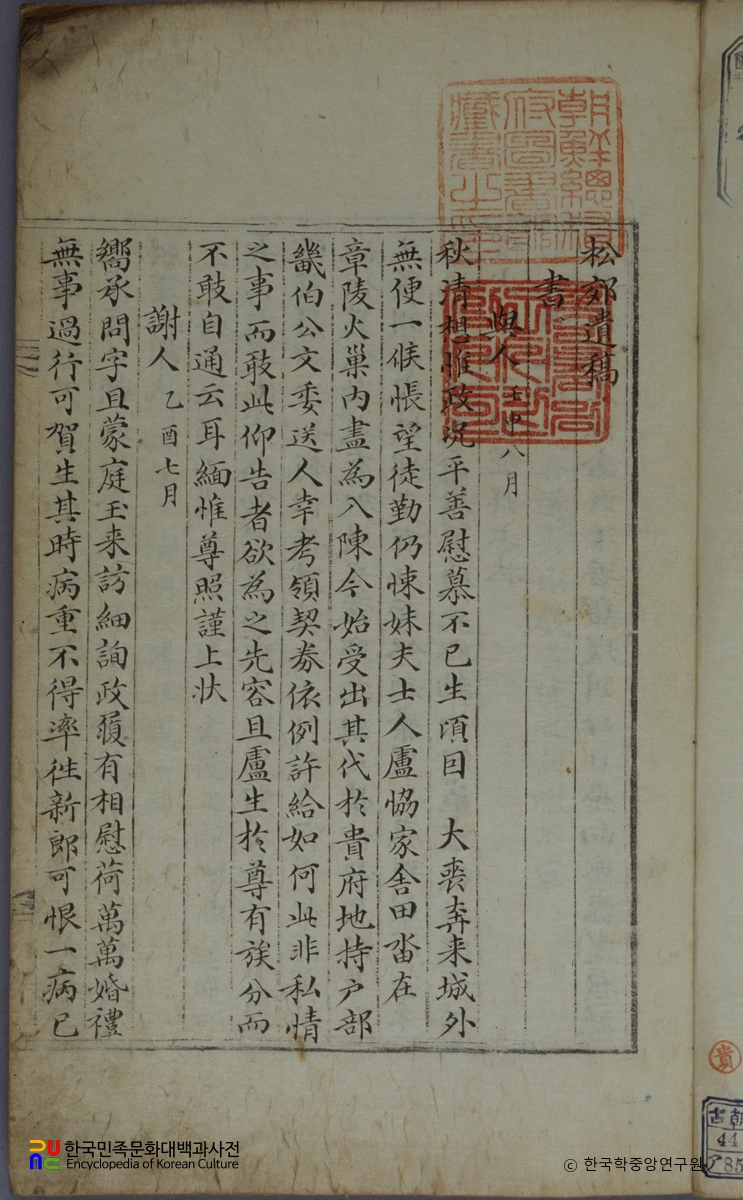 松郊遺稿
書
與人 壬申八月
秋清想惟政況平善慰慕不已生頃因 大喪奔来城外
無便一候悵望徒勤仍悚妹夫士人盧恊家舍田畓在
章陵火巢内盡為入陳今始受出其代於貴府地持户部
畿伯公文委送人幸考領契券依例許給如何此非私情
之事而敢此仰告者欲為之先容且盧生於尊有族分而
不敢自通云耳緬惟尊照謹上状
謝人 乙酉七月
嚮承問字且蒙庭玉来訪細詢政履有相慰荷萬萬婚禮
無事過行可賀生其時病重不得率徃新郎可恨一病已
朝鮮總督府圖書館藏書之印
貴
古朝
44
한국민족문화대백과사전
Encyclopedia of Korean Culture
© 한국학중앙연구원